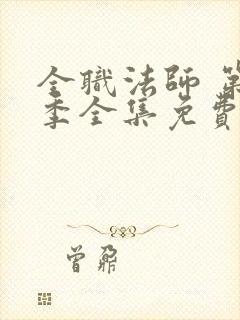 全職法師 第
季全集免費
曾鼐